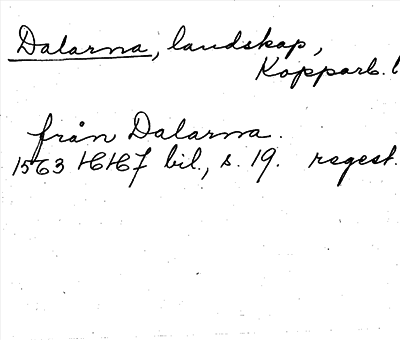 Dalarna, landskap,
Kopparb. l
från Dalarna.
1563 HH bil., s. 19. regest.